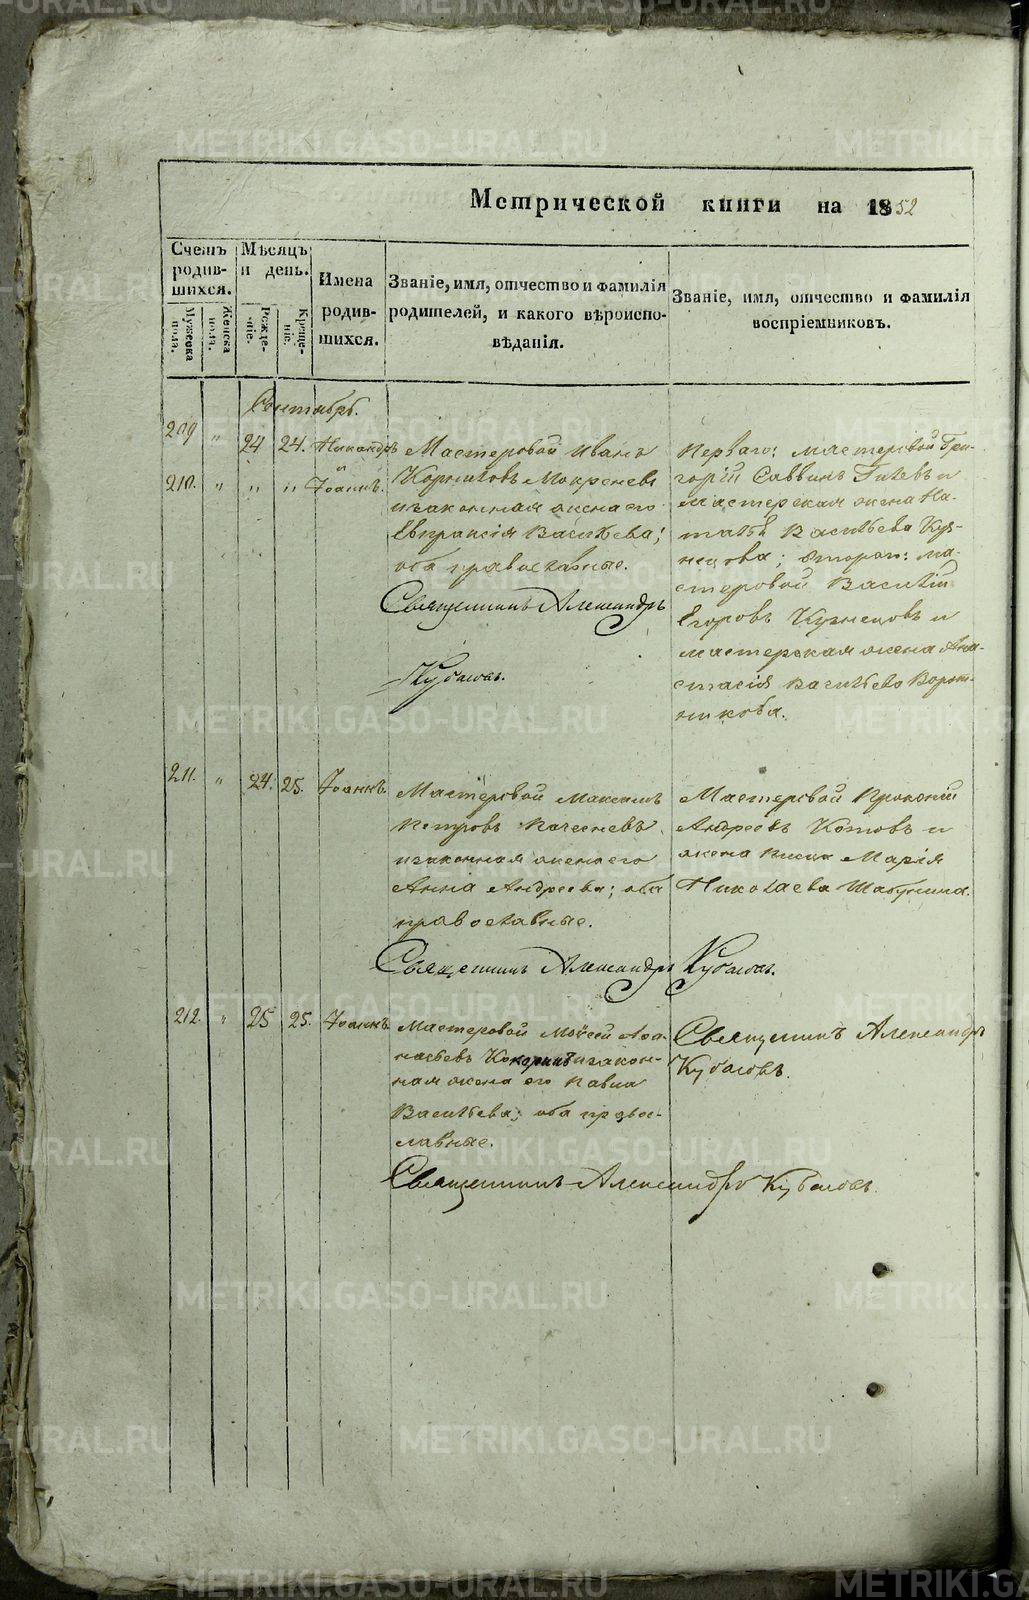 Метрической книги на 1852
Счетъ родив-шихся.
Мужеска пола.
Женска пола.
Мѣсяцъ и день.
Рожде-ніе.
Креще-ніе.
Имена родив-шихся.
Званіе, имя, отчество и фамилія
родителей, и какого вѣроиспо-
вѣданія.
Званіе, имя, отчество и фамилія
воспріемниковъ.
Сентябрь.
209 " 24 24. Никандръ
и
210. " " " Іоаннъ.
Мастеровой Иванъ
Корниловъ Мокреневъ
и законная жена его
Евпраксія Васильева;
оба православные.
Священникъ Александръ
Кубасовъ.
Перваго: мастеровой Гри-
горій Саввинъ и
мастерская жена На-
талья Васильева Куз-
нецова; втораго: ма-
стеровой Василій
Егоровъ Кузнецовъ и
мастерская жена Ана-
стасія Васильева Ворот-
никова.
211. " 24. 25. Іоаннъ.
Мастеровой Максимъ
Петровъ
и законная жена его
Анна Андреева; оба
православные.
Мастеровой Прокопій
Андреевъ Котовъ и
жена Марія
Николаева Шабунина.
Священникъ Александръ Кубасовъ.
212. " 25 25. Іоаннъ.
Мастеровой Моѵсей Аѳа-
насьевъ Кокоринъ и закон-
ная жена его Павла
Васильева; оба право-
славные.
Священникъ Александръ
Кубасовъ.
Священникъ Александръ Кубасовъ.
METRIKI.GASO-URAL.RU